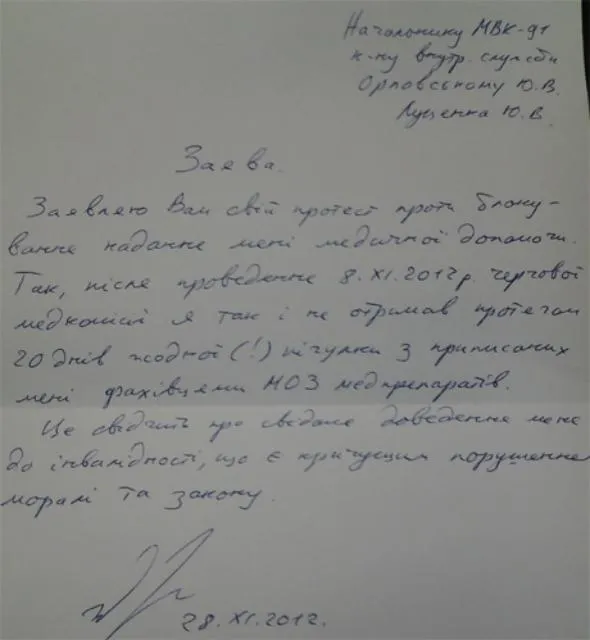 Начальнику МВК-91
к-ну внутр. служби
Орловському Ю.В.
Луценка Ю.В.
Заява.
Заявляю Вам свій протест проти блоку-
вання надання мені медичної допомоги.
Так, після проведення 8.XI.2012р. чергової
медкомісії я так і не отримав протягом
20 днів жодної (!) пігулки з приписаних
мені фахівцями МОЗ медпрепаратів.
Це свідчить про свідоме доведення мене
до інвалідності, що є кричущим порушення
моралі та закону.
28.XI.2012.